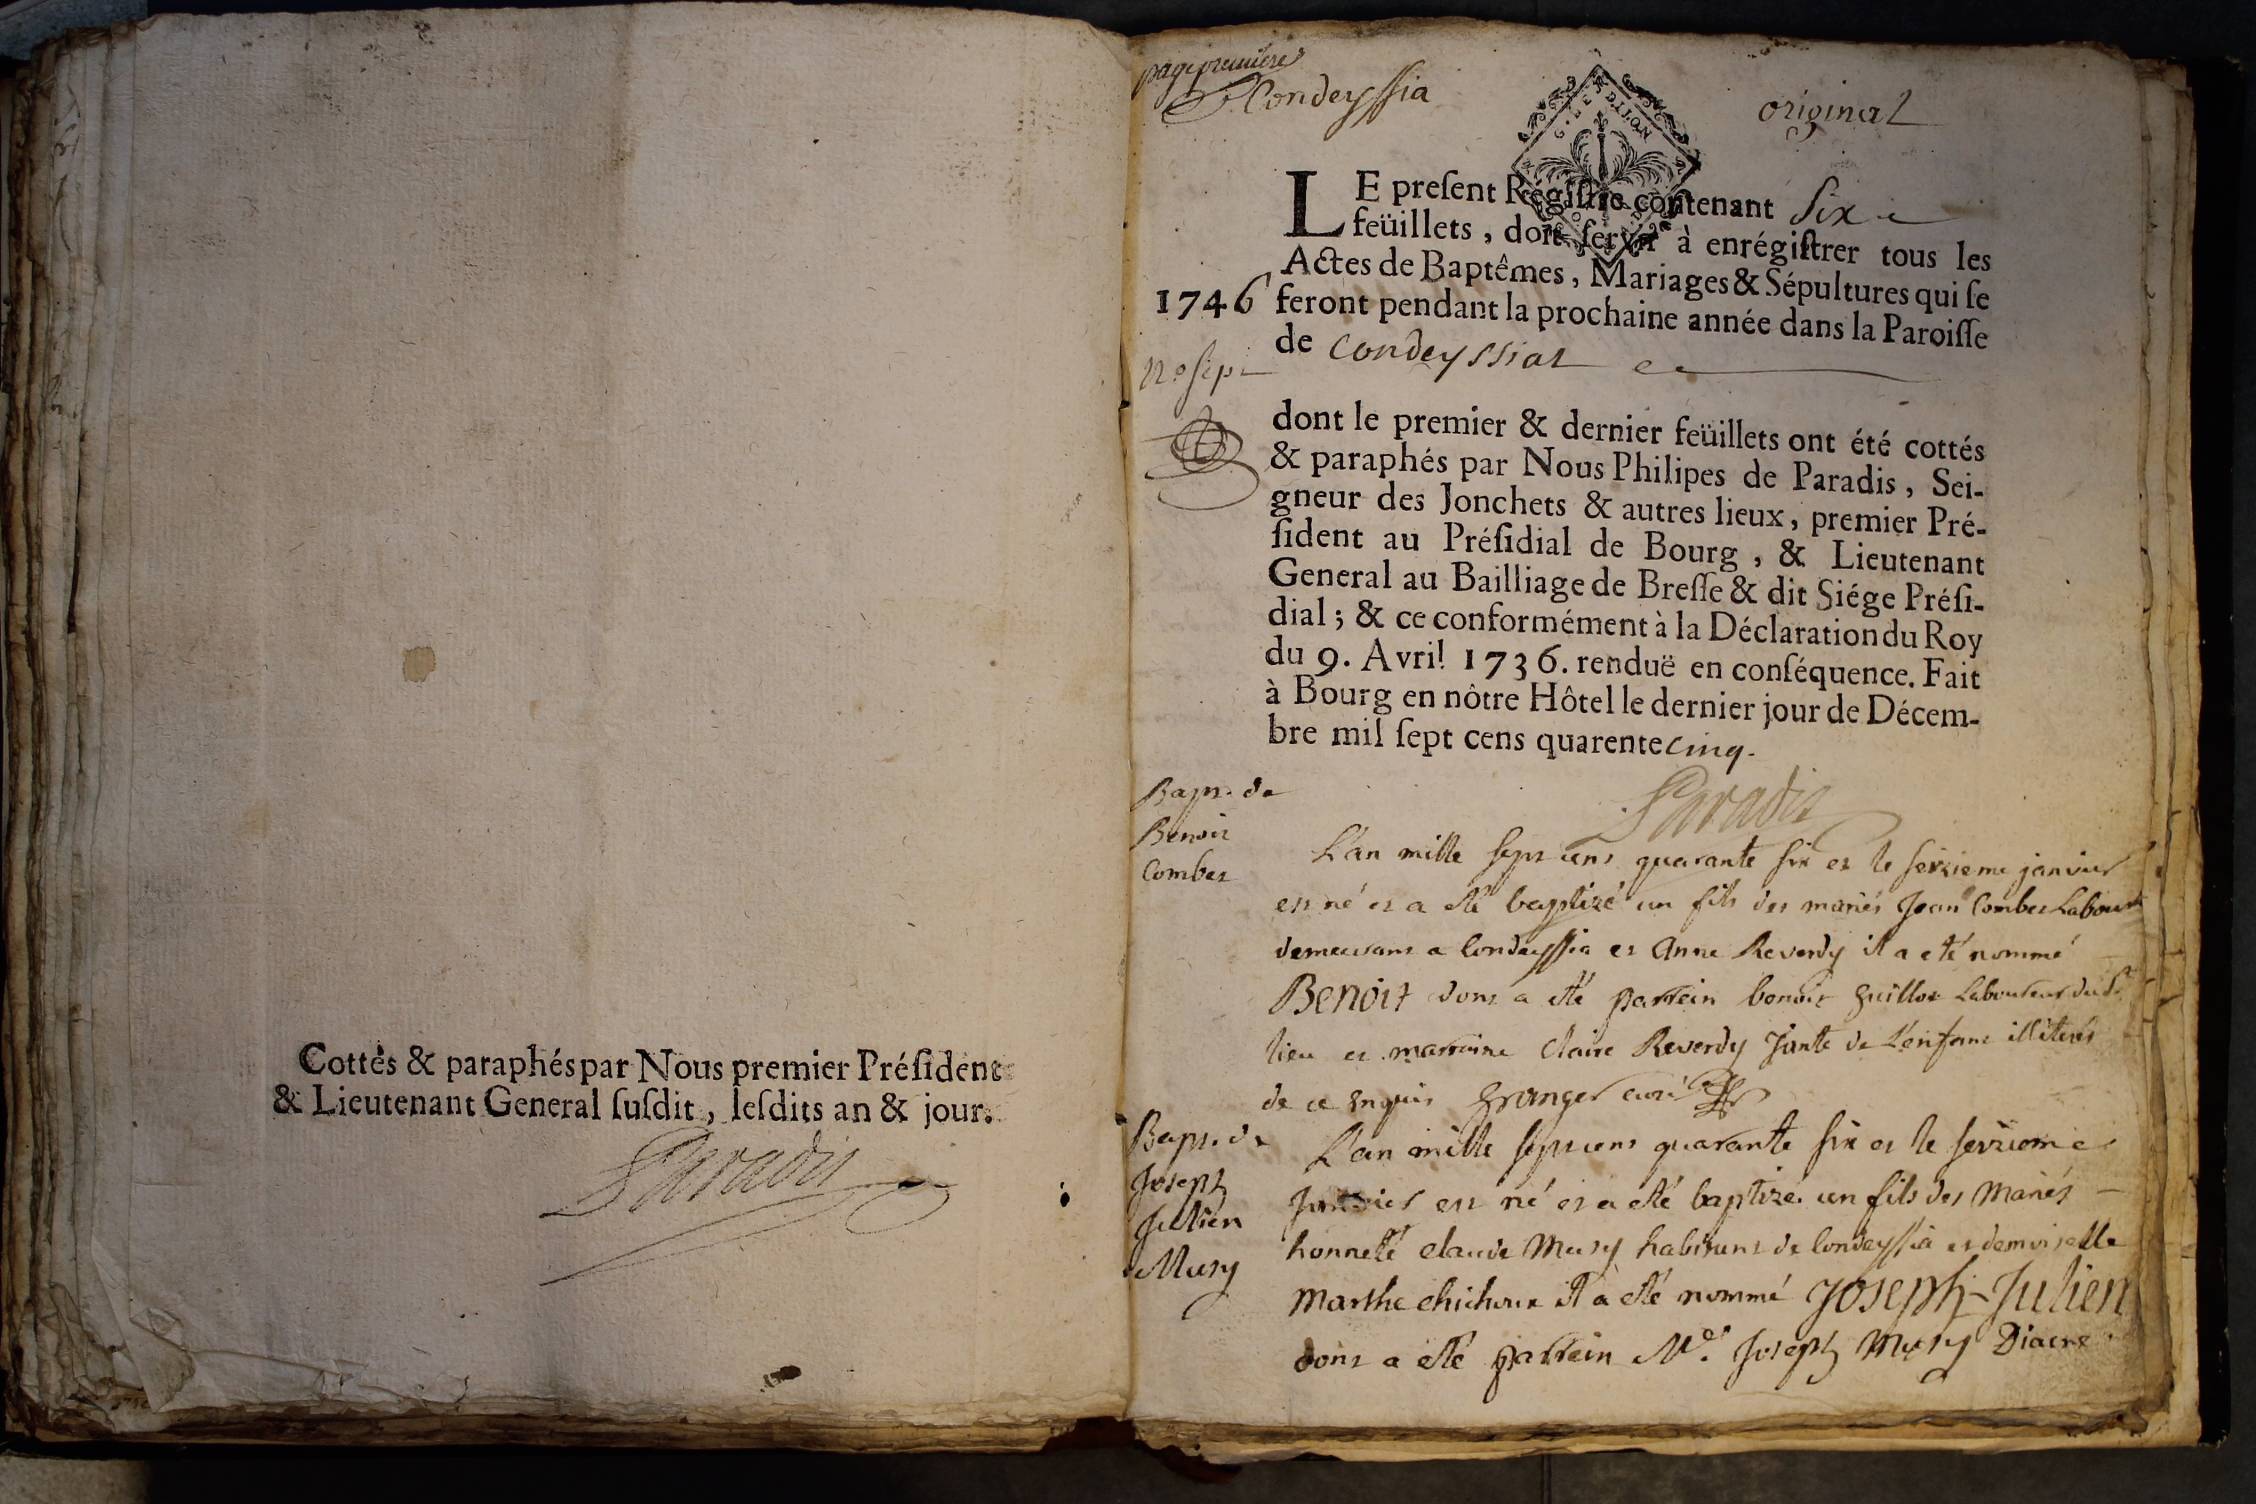 Cottés & paraphés par Nous premier Préſident
& Lieutenant General ſuſdit, leſdits an & jour.
Paradis
page premiere
Condeyssia
original
G. DE DIJON
LE preſent Régiſtre contenant six
feüillets, doit ſervir à enrégiſtrer tous les
Actes de Baptêmes, Mariages & Sépultures qui ſe
1746 feront pendant la prochaine année dans la Paroiſſe
de Condeyssiat
dont le premier & dernier feüillets ont été cottés
& paraphés par Nous Philipes de Paradis, Sei-
gneur des Jonchets & autres lieux, premier Pré-
ſident au Préſidial de Bourg, & Lieutenant
General au Bailliage de Breſſe & dit Siége Préſi-
dial; & ce conformément à la Déclaration du Roy
du 9. Avril 1736. renduë en conſéquence. Fait
à Bourg en nôtre Hôtel le dernier jour de Décem-
bre mil ſept cens quarente cinq.
Paradis
Bapt. de
Benoit
Combet
L'an mille sept cens quarante six et le seizieme janvier
est né et a été baptizé un fils des mariés Jean Combet Laboureur
demeurant a Condeyssia et Anne Reverdy il a été nommé
BENOIT dont a été parrein benoit Guillot Laboureur dud.
lieu et marraine Claire Reverdy Tante de L'enfant illiterés
de ce enquis Granger curé
Bapt. de
Joseph
Julien
Musy
L'an mille sept cens quarante six et le seizieme
Janvier est né et a été baptizé un fils des Mariés
honneté claude Musy habitant de Condeyssia et demoiselle
Marthe chichoux il a été nommé JOSEPH-Julien
dont a été parrein Mre. Joseph Musy Diacre